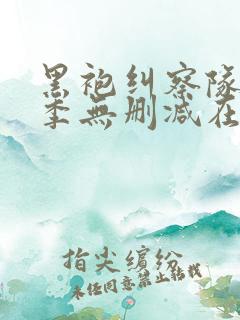 黑袍纠察队
季無删减在
指尖缤纷
未经同意禁止转载